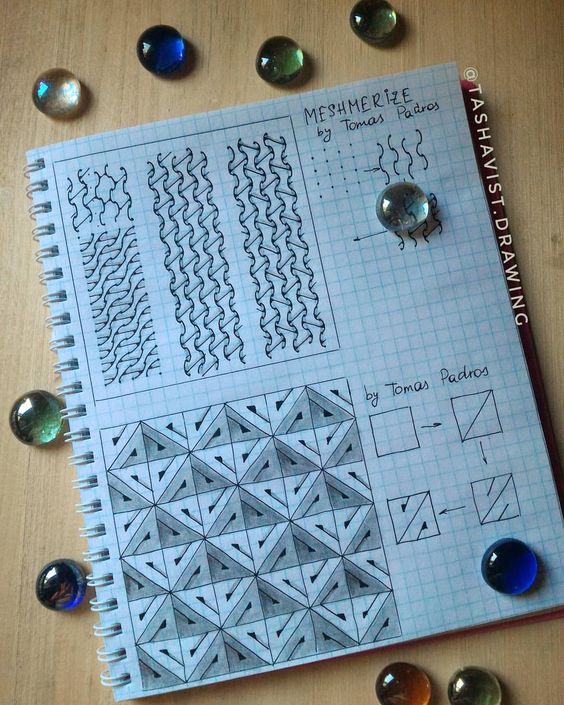 MESHMERIZE
by Tomas Padros
@TASHAVIST.DRAWING
by Tomas Padros